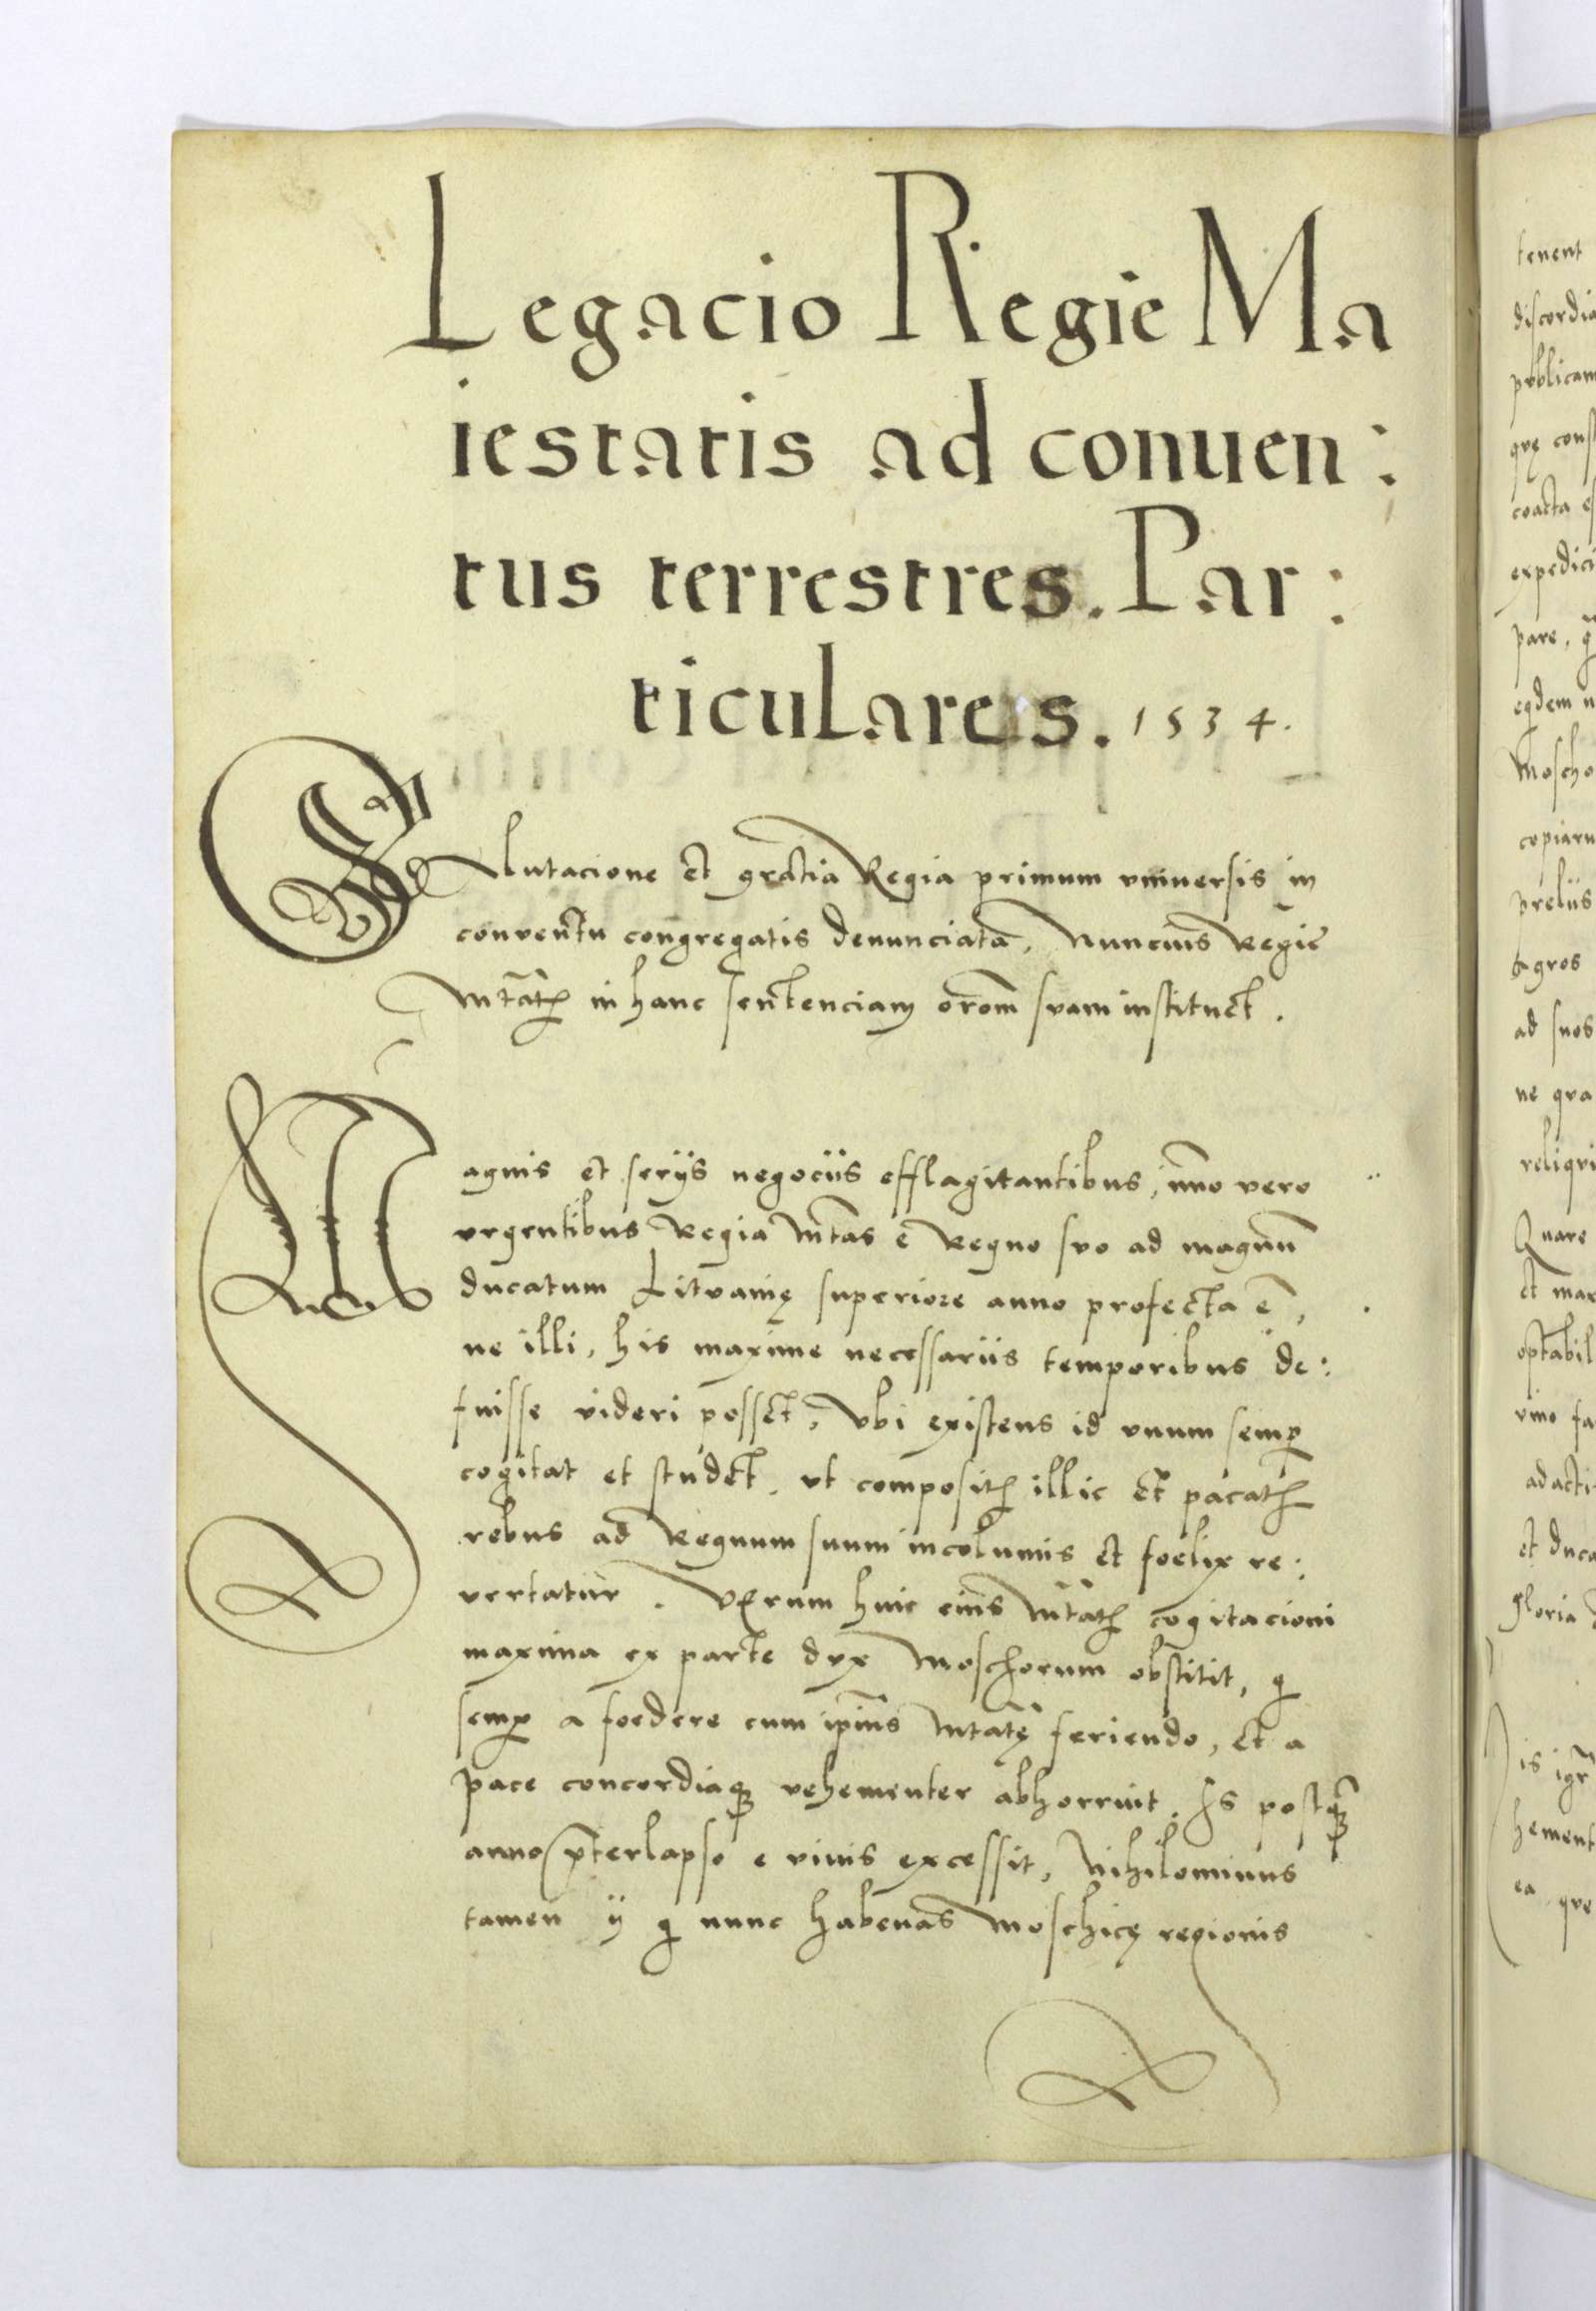 Legacio Regie Ma
iestatis ad conuen:
tus terrestres. Par:
ticulares. 1534.
Salutacione et gratia Regia primum vniuersis in
conventu congregatis denunciata, Nuncius Regie
Mtatis in hanc sentenciam orõm svam instituet.
Magnis et serijs negociis efflagitantibus, imo vero
vrgentibus Regia Mtas e Regno svo ad magnũ
ducatum Litvanię superiore anno profecta ẽ,
ne illi, his maxime necessariis temporibus de:
fuisse videri posset, Vbi existens id vnum semp
cogitat et studet, vt compositis illic et pacatis
rebus ad Regnum suum incolumis et foelix re:
vertatur. Verum huic eius Mtatis cogitacioni
maxima ex parte dvx Moschorum obstitit, q
semp a foedere cum ipius Mtate feriendo, et a
pace concordiaq vehementer abhorruit. Is postq̃
anno p̃terlapso e viuis excessit, Nihilominus
tamen ij q nunc habenas Moschicę regionis
tenent
discordia
pvblicam
qvę cons
coacta es
expedici
pare, q
eqdem n
Moscho
copiaru
preliis
agros
ad suos
ne qva
reliqvi
Quare
et max
optabil
vino fa
adacti
et duca
gloria
is igr
hement
ea qve